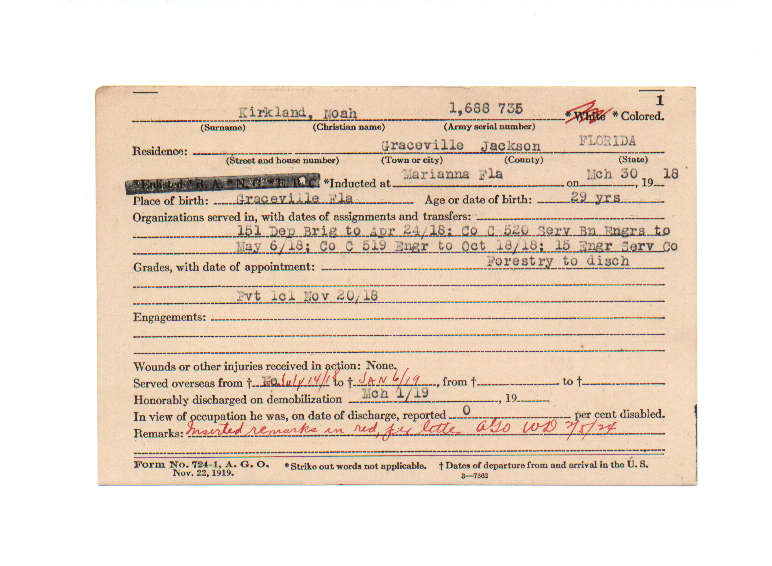 1
Kirkland, Noah 1,688 735 *White *Colored.
(Surname) (Christian name) (Army serial number)
Residence: Graceville Jackson FLORIDA
(Street and house number) (Town or city) (County) (State)
*Enlisted *R. A. *N. G. *E. R. C. *Inducted at Marianna Fla on Mch 30, 19 18
Place of birth: Graceville Fla Age or date of birth: 29 yrs
Organizations served in, with dates of assignments and transfers:
151 Dep Brig to Apr 24/18; Co C 520 Serv Bn Engrs to
May 6/18; Co C 519 Engr to Oct 18/18; 15 Engr Serv Co
Grades, with date of appointment: Forestry to disch
Pvt 1cl Nov 20/18
Engagements:
Wounds or other injuries received in action: None.
Served overseas from † July 14/18 to † JAN 6/19, from † to †
Honorably discharged on demobilization Mch 1/19, 19
In view of occupation he was, on date of discharge, reported 0 per cent disabled.
Remarks: Inserted remarks in red, per letter AGO WD 2/5/24
Form No. 724-1, A. G. O. *Strike out words not applicable. † Dates of departure from and arrival in the U. S.
Nov. 22, 1919. 3—7362